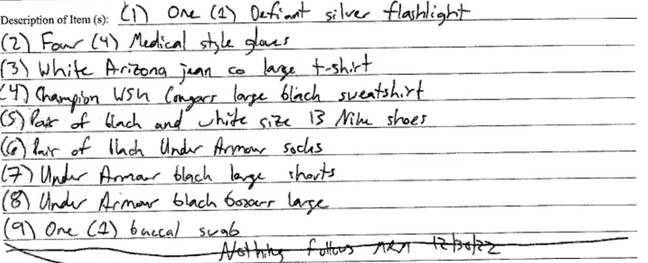 Description of Item (s): (1) One (1) Defiant silver flashlight
(2) Four (4) Medical style gloves
(3) White Arizona jean co large t-shirt
(4) Champion WSU Cougars large black sweatshirt
(5) Pair of black and white size 13 Nike shoes
(6) Pair of black Under Armour socks
(7) Under Armour black large shorts
(8) Under Armour black boxers large
(9) One (1) buccal swab
Nothing follows 12/30/22